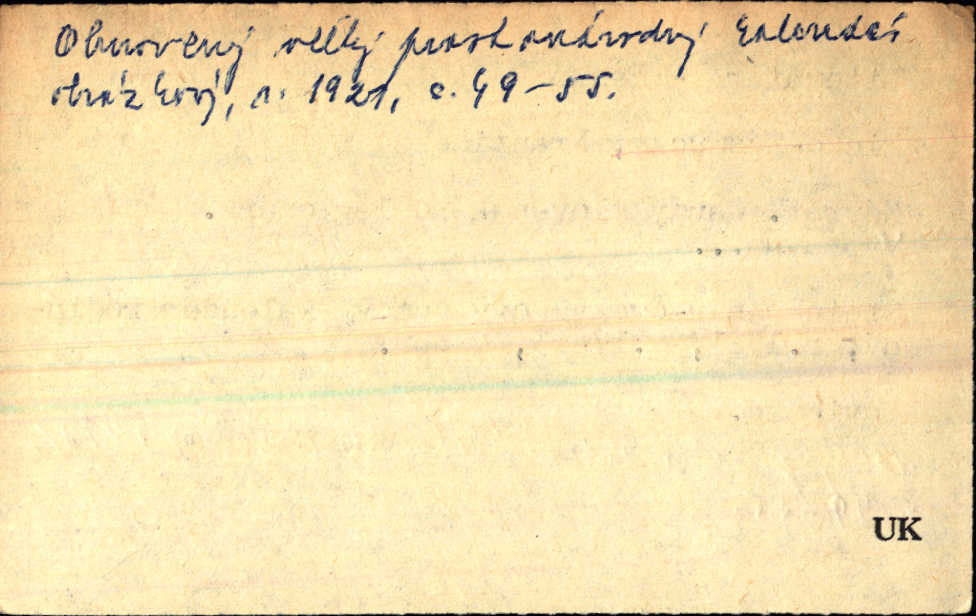 Obnovený velký prostonárodný kalendář
obrázkový, r. 1921, s. 49-55.
UK